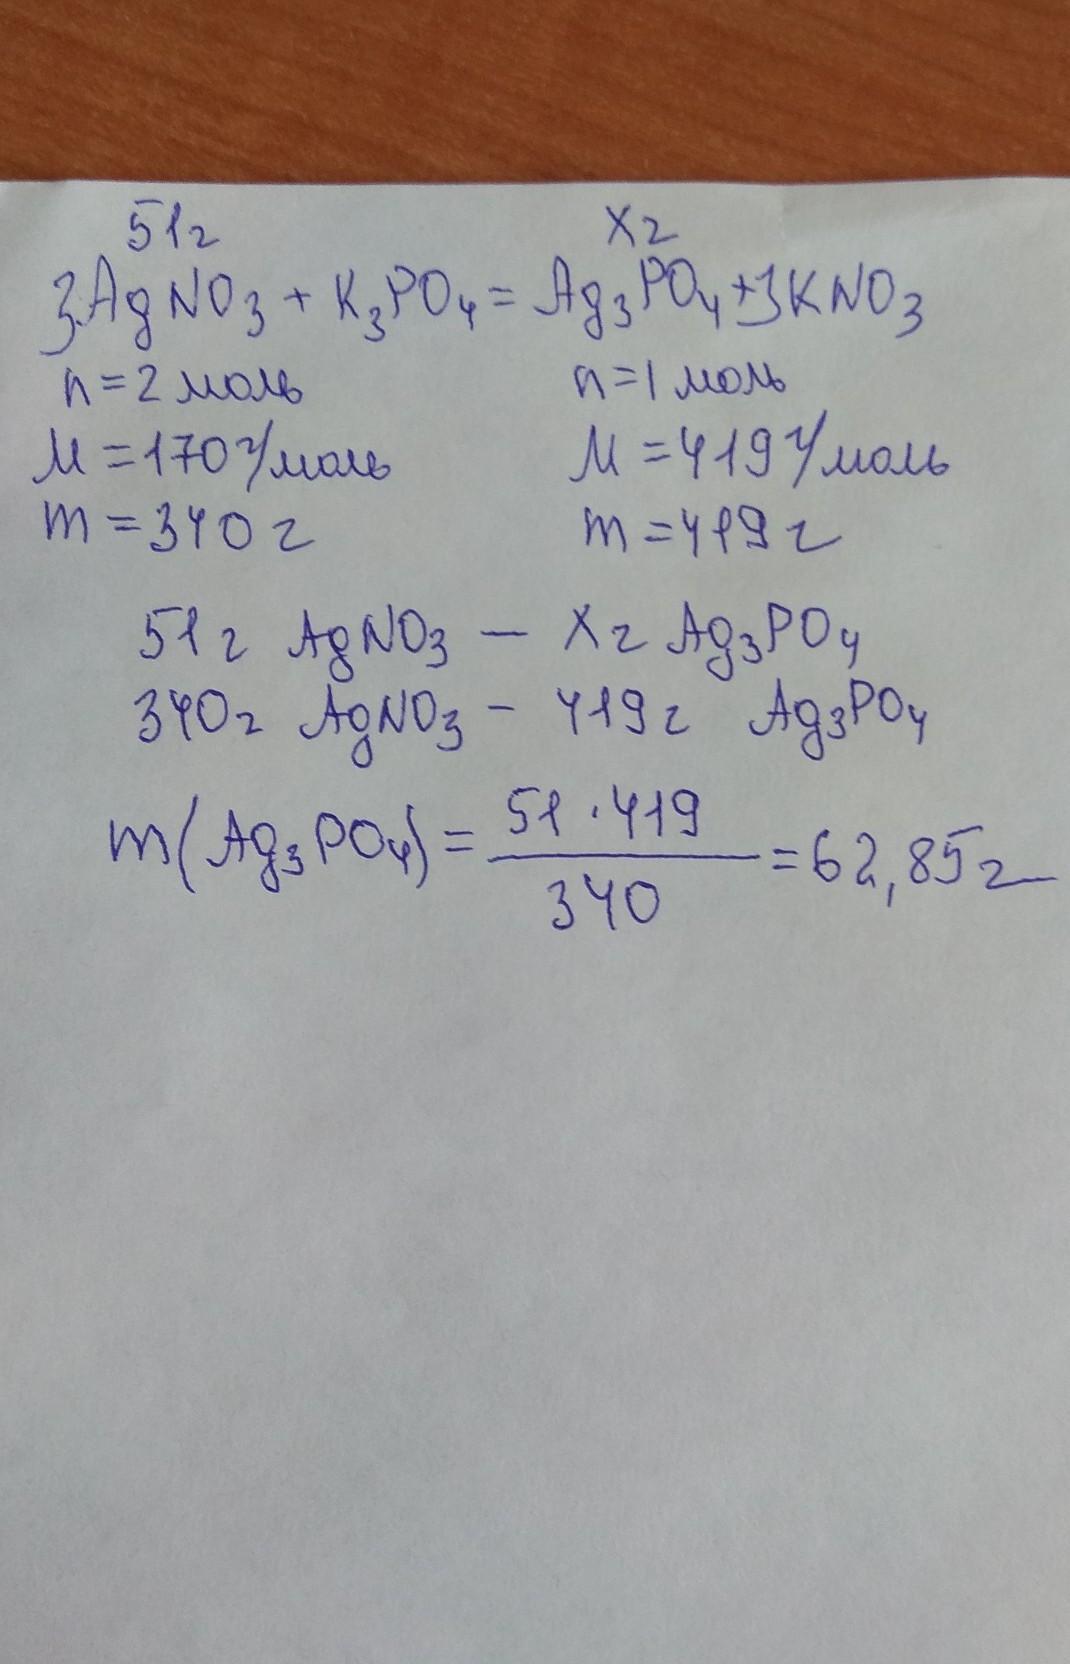 51г Xг
3AgNO3 + K3PO4 = Ag3PO4 + 3KNO3
n=2 моль n=1 моль
M=170 г/моль M=419 г/моль
m=340 г m=419 г
51 г AgNO3 — X г Ag3PO4
340 г AgNO3 - 419 г Ag3PO4
m(Ag3PO4) = 51·419 / 340 = 62,85 г